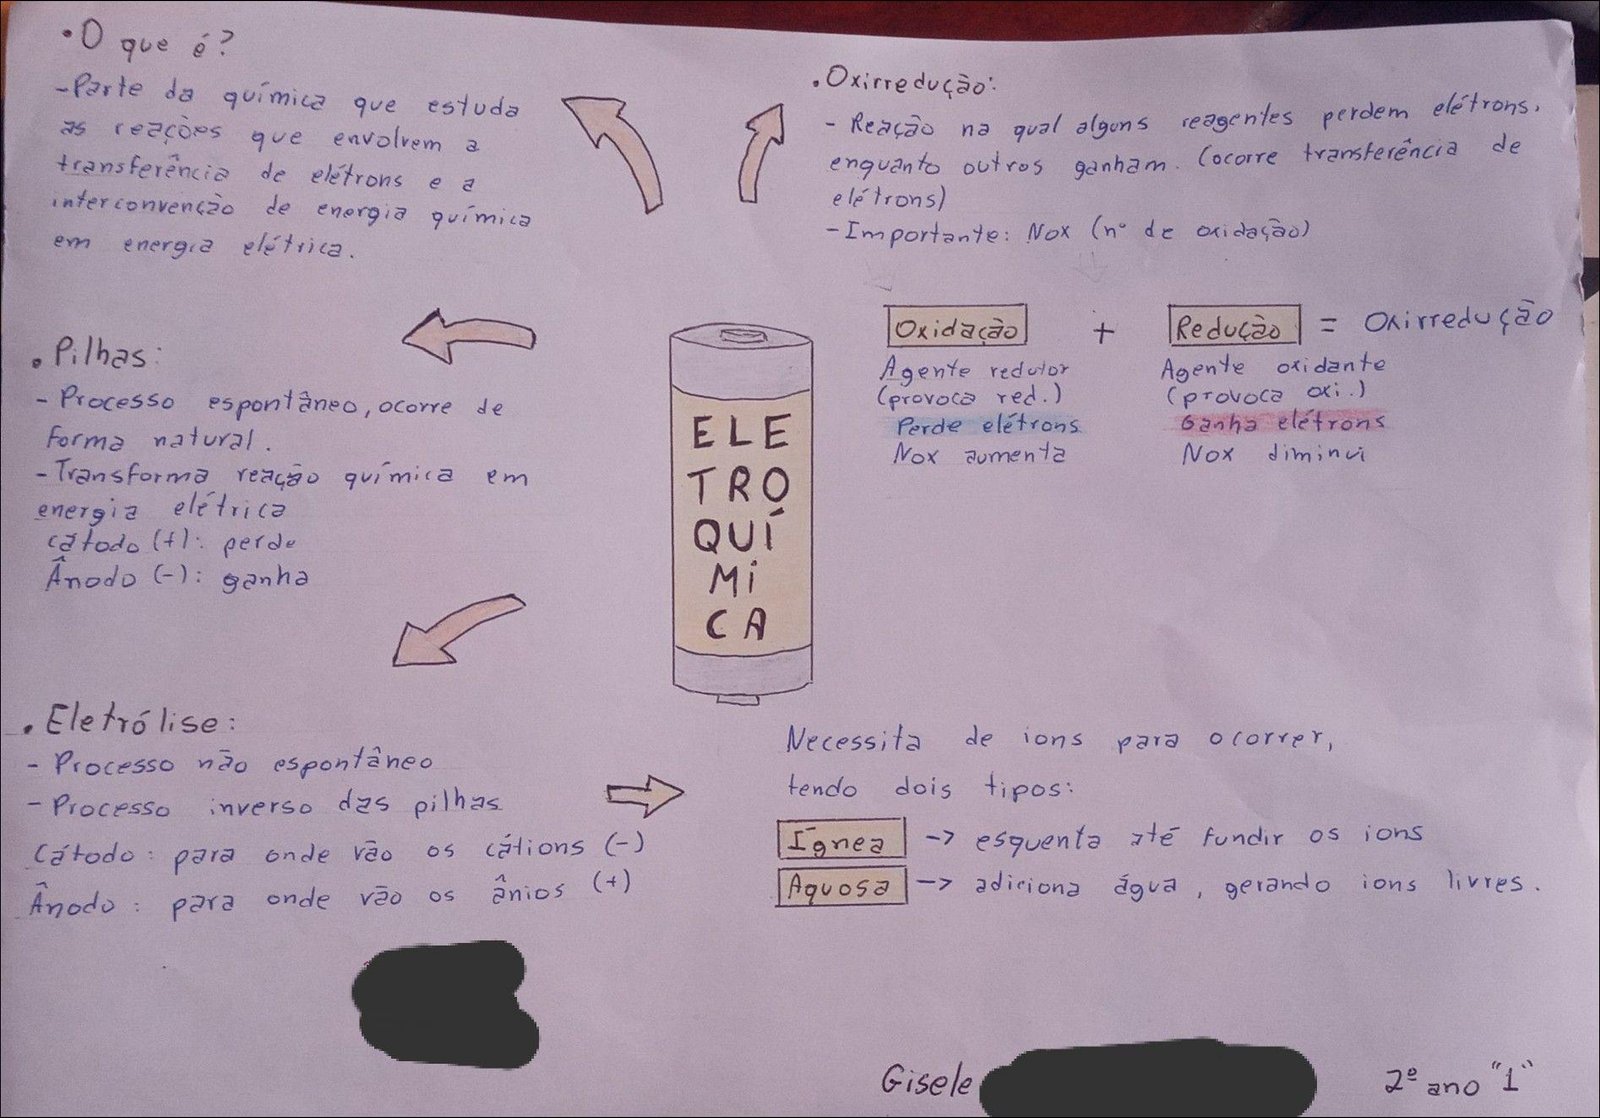 • O que é?
- Parte da química que estuda
as reações que envolvem a
transferência de elétrons e a
interconvenção de energia química
em energia elétrica.
• Oxirredução:
- Reação na qual alguns reagentes perdem elétrons,
enquanto outros ganham. (ocorre transferência de
elétrons)
- Importante: Nox (nº de oxidação)
Oxidação + Redução = Oxirredução
Agente redutor
(provoca red.)
Perde elétrons
Nox aumenta
Agente oxidante
(provoca oxi.)
Ganha elétrons
Nox diminui
• Pilhas:
- Processo espontâneo, ocorre de
forma natural.
- Transforma reação química em
energia elétrica
cátodo (+): perde
Ânodo (-): ganha
ELE
TRO
QUÍ
Mi
CA
• Eletrólise:
- Processo não espontâneo
- Processo inverso das pilhas
Cátodo: para onde vão os cátions (-)
Ânodo: para onde vão os ânios (+)
Necessita de ions para ocorrer,
tendo dois tipos:
Ígnea -> esquenta até fundir os ions
Aquosa -> adiciona água, gerando ions livres.
Gisele
2º ano "1"